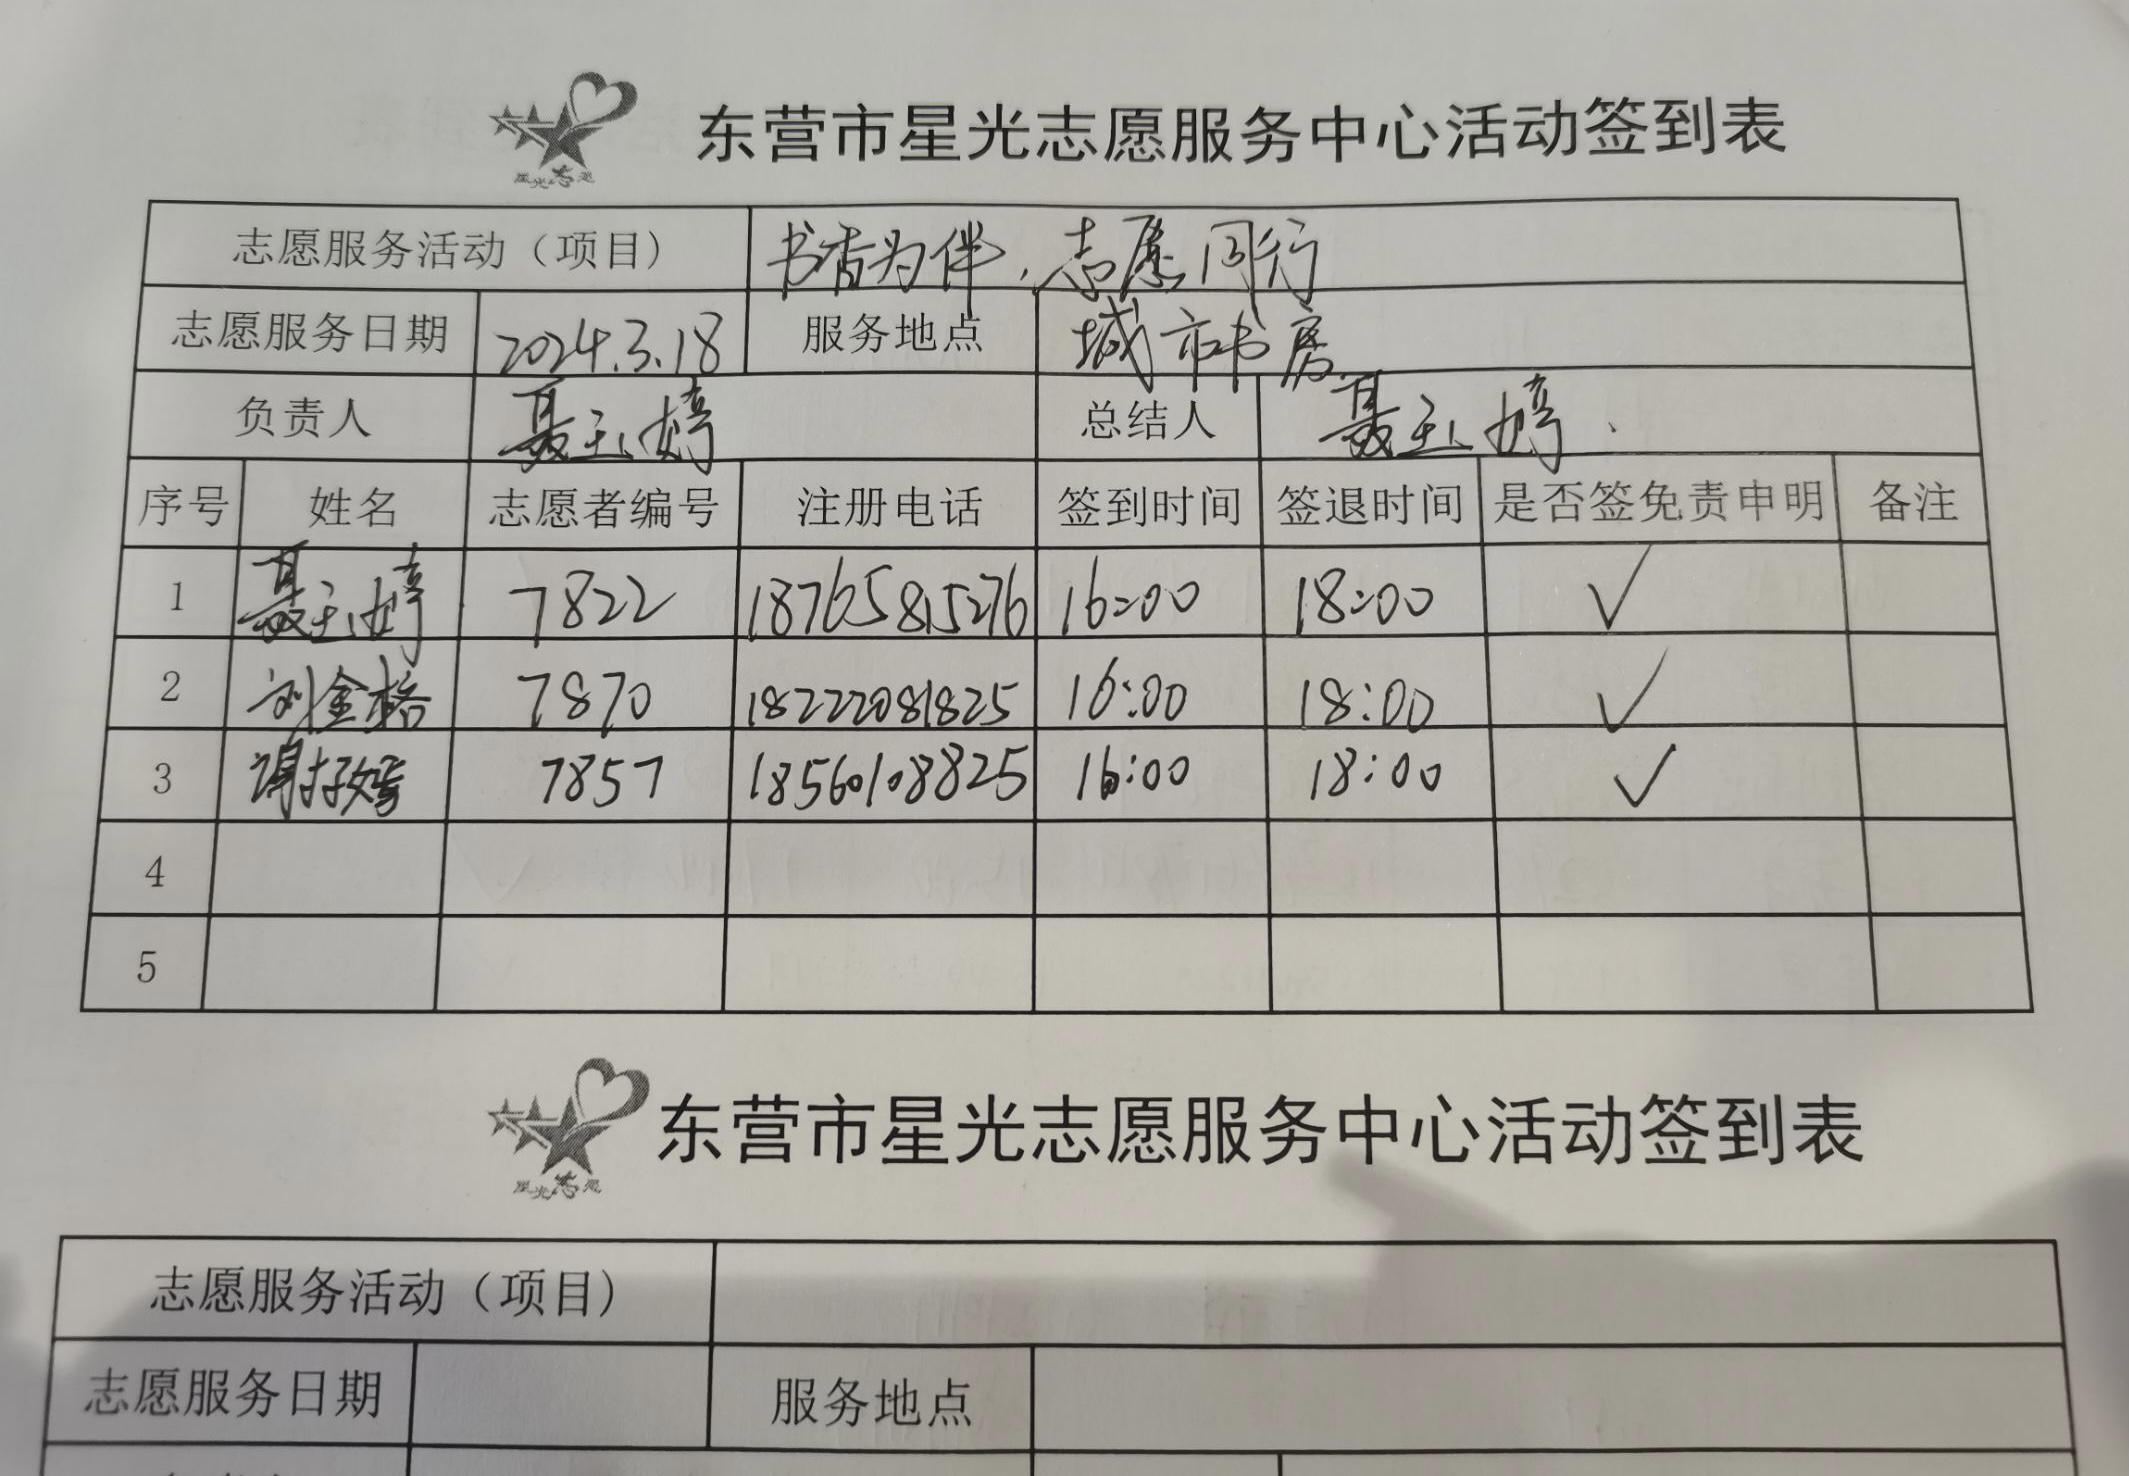 东营市星光志愿服务中心活动签到表
星光志愿
志愿服务活动（项目） 书香为伴，志愿同行
志愿服务日期 2024.3.18 服务地点 城市书房
负责人 聂玉婷 总结人 聂玉婷
序号 姓名 志愿者编号 注册电话 签到时间 签退时间 是否签免责申明 备注
1 聂玉婷 7822 18765815276 16:00 18:00 ✓
2 刘金格 7870 18222081825 16:00 18:00 ✓
3 谢 7857 18560108825 16:00 18:00 ✓
4
5
东营市星光志愿服务中心活动签到表
星光志愿
志愿服务活动（项目）
志愿服务日期 服务地点